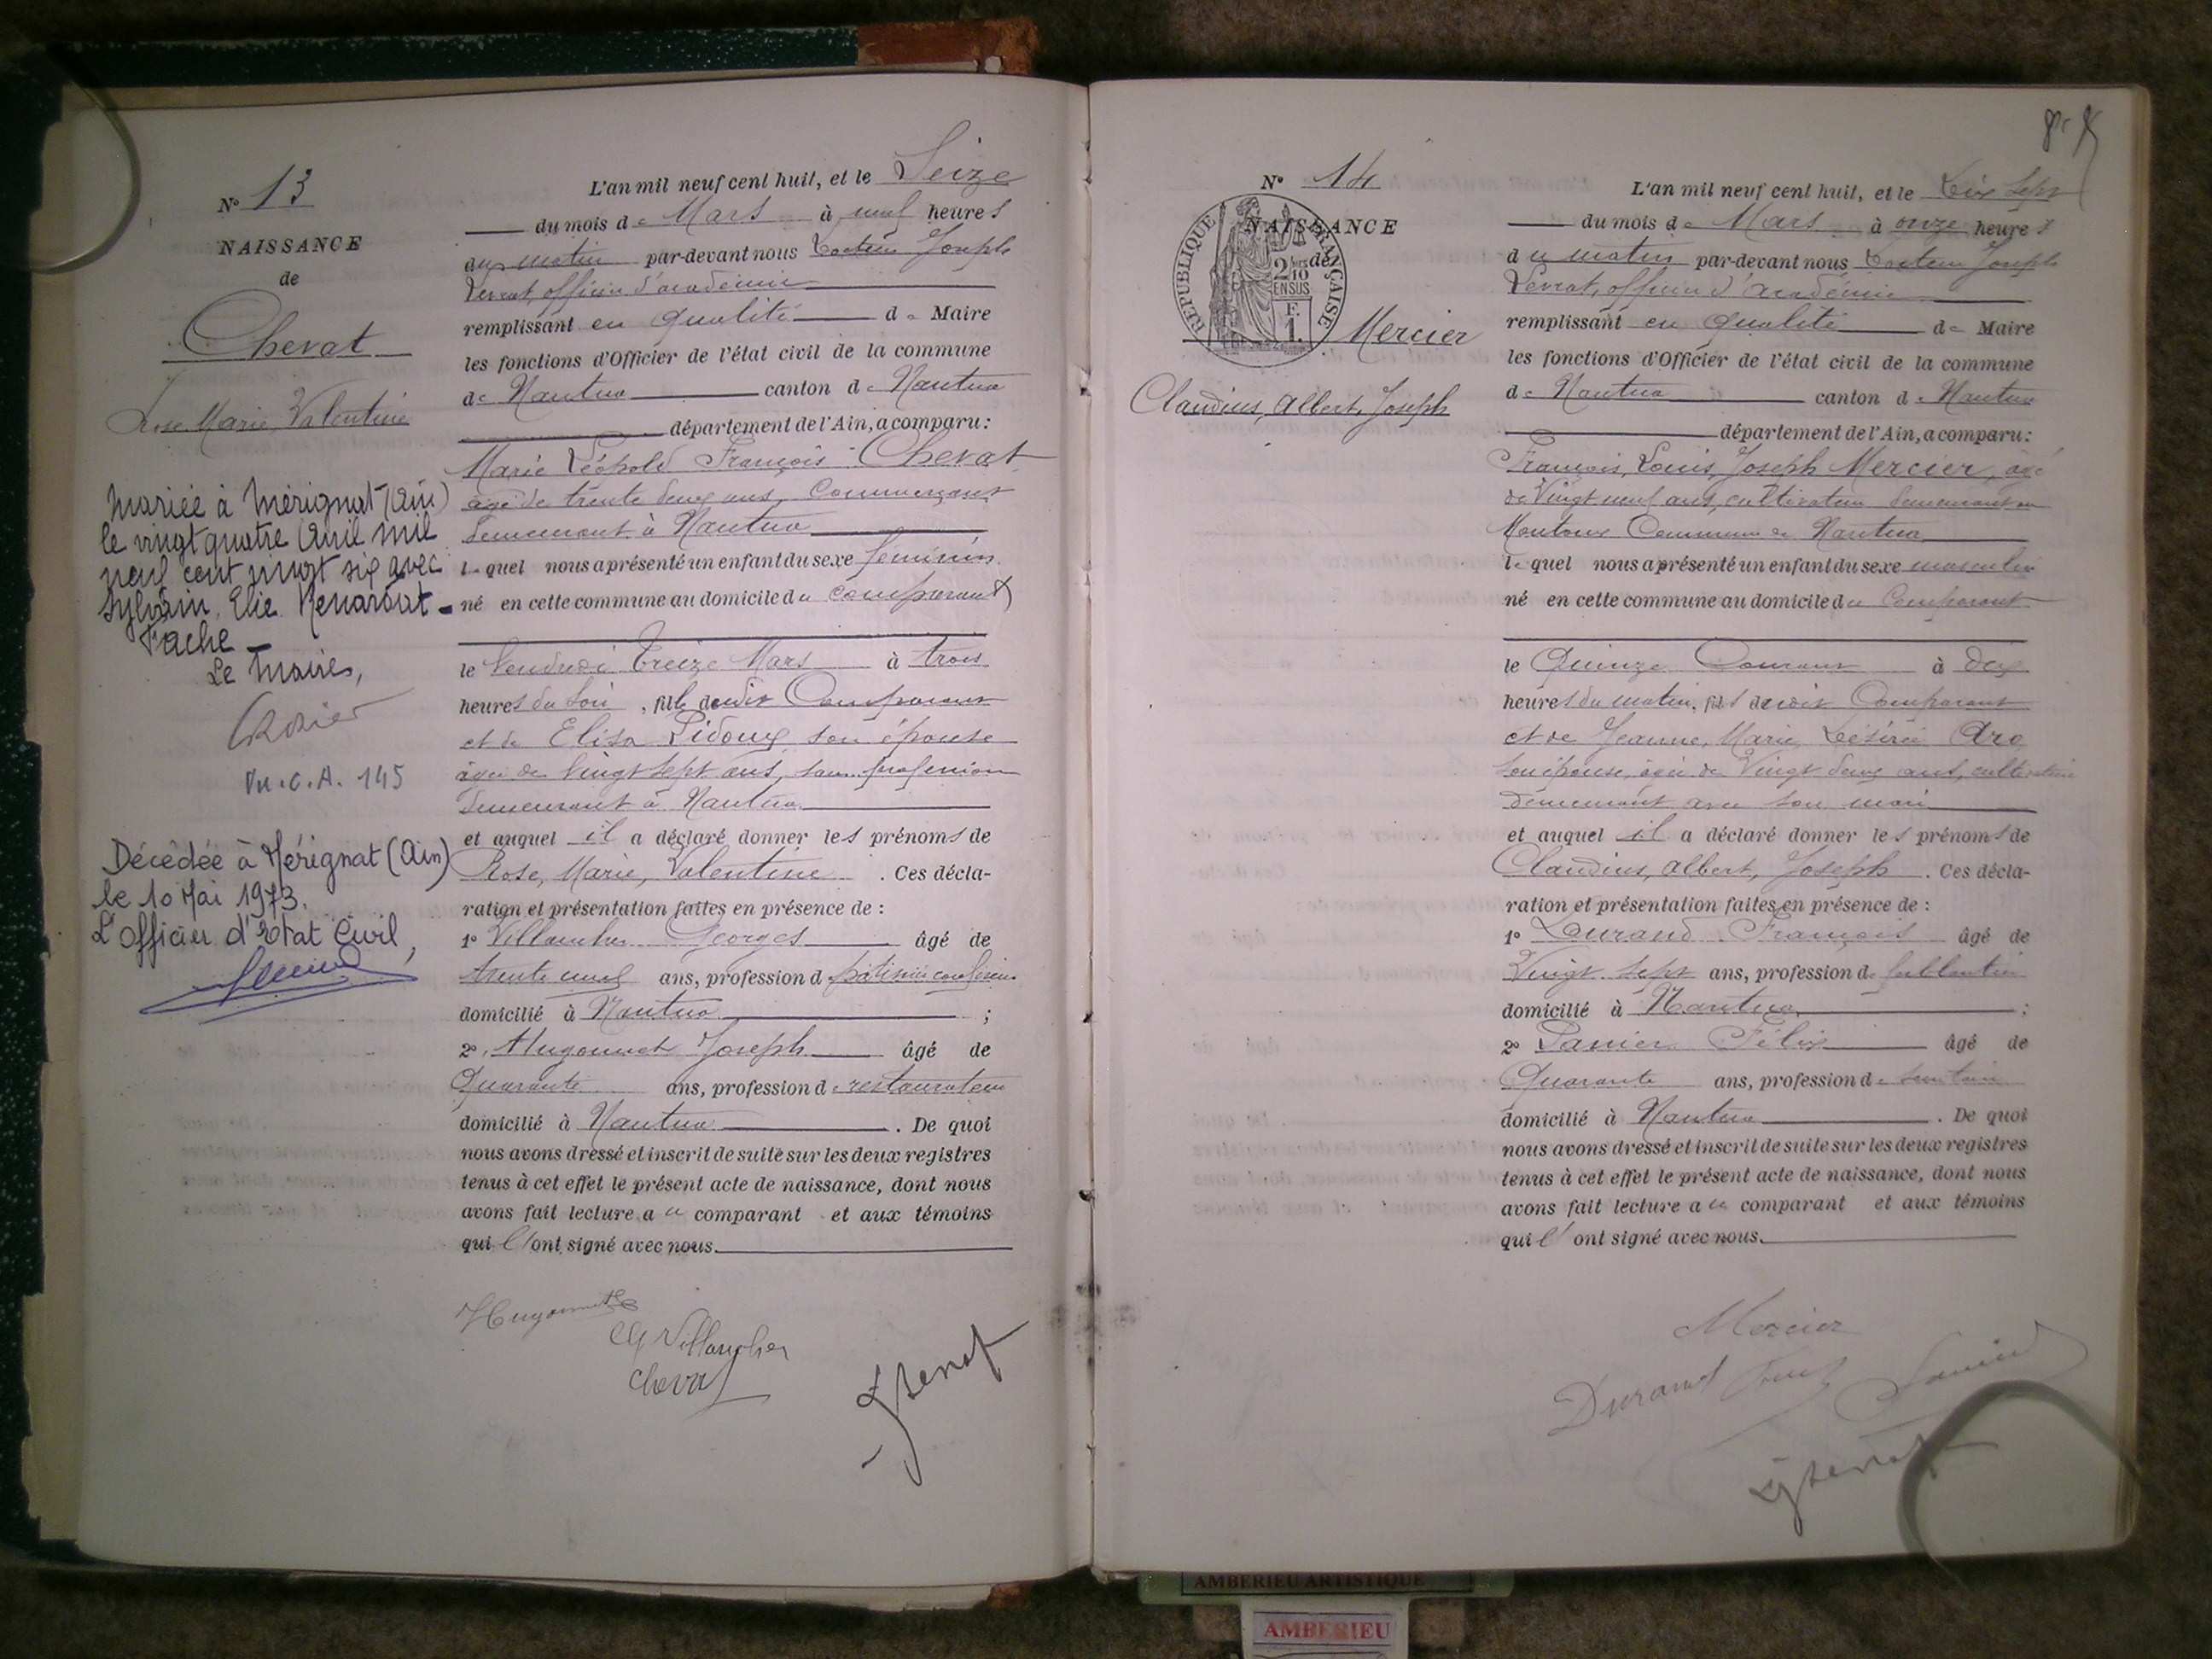 N° 13
NAISSANCE
de
Chevat
Rose Marie Valentine
Mariée à Mérignat (Ain)
le vingt quatre Avril mil
neuf cent vingt six avec
Sylvain Elie
Tache
Le Maire,
Vu. C. A. 145
Décédée à Mérignat (Ain)
le 10 Mai 1973.
L'officier d'Etat Civil,
L'an mil neuf cent huit, et le Seize
du mois de Mars à neuf heures
du matin par-devant nous Docteur Joseph
Levrat, officier d'académie
remplissant en qualité de Maire
les fonctions d'Officier de l'état civil de la commune
de Nantua canton de Nantua
département de l'Ain, a comparu:
Marie Léopold François Chevat
âgé de trente deux ans, Commerçant
demeurant à Nantua
lequel nous a présenté un enfant du sexe féminin
né en cette commune au domicile du comparant
le Vendredi Treize Mars à trois
heures du soir, fille dudit Comparant
et de Elisa Pidoux son épouse
âgée de vingt sept ans, sans profession
demeurant à Nantua
et auquel il a déclaré donner les prénoms de
Rose, Marie, Valentine. Ces décla-
ration et présentation faites en présence de :
1° Villancher Georges âgé de
trente neuf ans, profession de pâtissier confiseur
domicilié à Nantua ;
2° Hugonnet Joseph âgé de
Quarante ans, profession de restaurateur
domicilié à Nantua. De quoi
nous avons dressé et inscrit de suite sur les deux registres
tenus à cet effet le présent acte de naissance, dont nous
avons fait lecture au comparant et aux témoins
qui l'ont signé avec nous.
Hugonnet
G Villancher
Chevat
N° 14
NAISSANCE
de
REPUBLIQUE FRANÇAISE
2/10 EN SUS
F.
1.
Mercier
Claudius, Albert, Joseph
L'an mil neuf cent huit, et le Dix Sept
du mois de Mars à onze heures
du matin par-devant nous Docteur Joseph
Levrat, officier d'académie
remplissant en qualité de Maire
les fonctions d'Officier de l'état civil de la commune
de Nantua canton de Nantua
département de l'Ain, a comparu:
François, Louis, Joseph Mercier, âgé
de Vingt neuf ans, cultivateur demeurant
Commune de Nantua
lequel nous a présenté un enfant du sexe masculin
né en cette commune au domicile du Comparant
le Quinze Courant à dix
heures du matin, fils dudit Comparant
et de Jeanne, Marie, Désirée
son épouse, âgée de Vingt deux ans, cultivatrice
demeurant avec son mari
et auquel il a déclaré donner les prénoms de
Claudius, Albert, Joseph. Ces décla-
ration et présentation faites en présence de :
1° Durand François âgé de
Vingt Sept ans, profession de ferblantier
domicilié à Nantua ;
2° Panier Félix âgé de
Quarante ans, profession de
domicilié à Nantua. De quoi
nous avons dressé et inscrit de suite sur les deux registres
tenus à cet effet le présent acte de naissance, dont nous
avons fait lecture au comparant et aux témoins
qui l'ont signé avec nous.
Mercier
Durand
AMBERIEU ARTISTIQUE
AMBERIEU